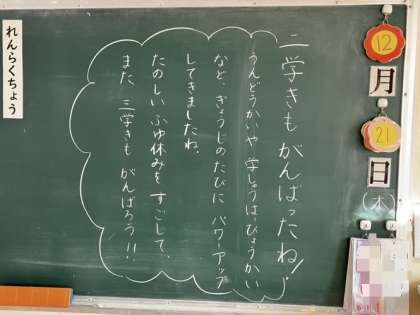 12
月
21
日
(木)
二学きもがんばったね!
うんどうかいや学しゅうはっぴょうかい
など、ぎょうじのたびにパワーアップ
してきましたね。
たのしいふゆ休みをすごして、
また三学きもがんばろう!!
れんらくちょう